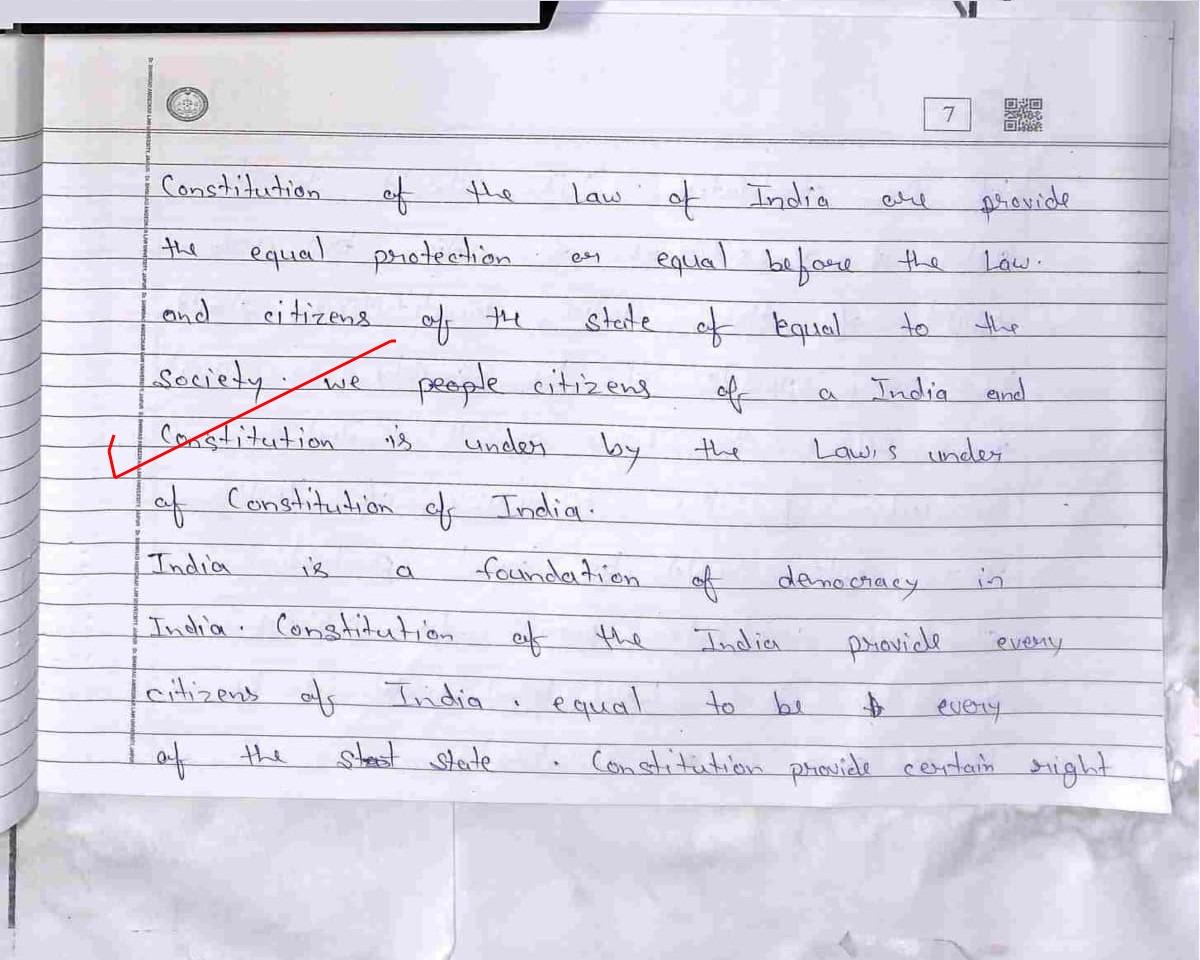 7
Constitution of the Law of India are provide
the equal protection or equal before the Law.
and citizens of the state of equal to the
society. we people citizens of a India and
Constitution is under by the Law,s under
of Constitution of India.
India is a foundation of democracy in
India. Constitution of the India provide every
citizens of India. equal to be every
of the state . Constitution provide certain right